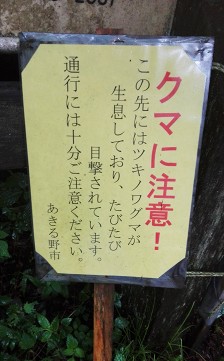 クマに注意！
この先にはツキノワグマが
生息しており、たびたび
目撃されています。
通行には十分ご注意ください。
あきる野市